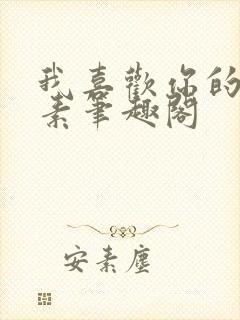 我喜歡你的
素筆趣閣
安素塵